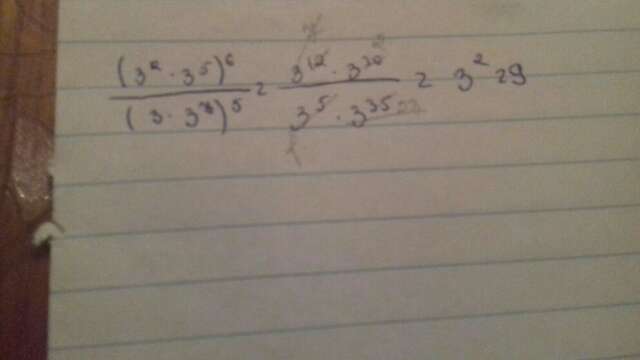 (3² · 3⁵)⁶ / (3 · 3⁷)⁵ = 3¹² · 3³⁰ / 3⁵ · 3³⁵ = 3² = 9